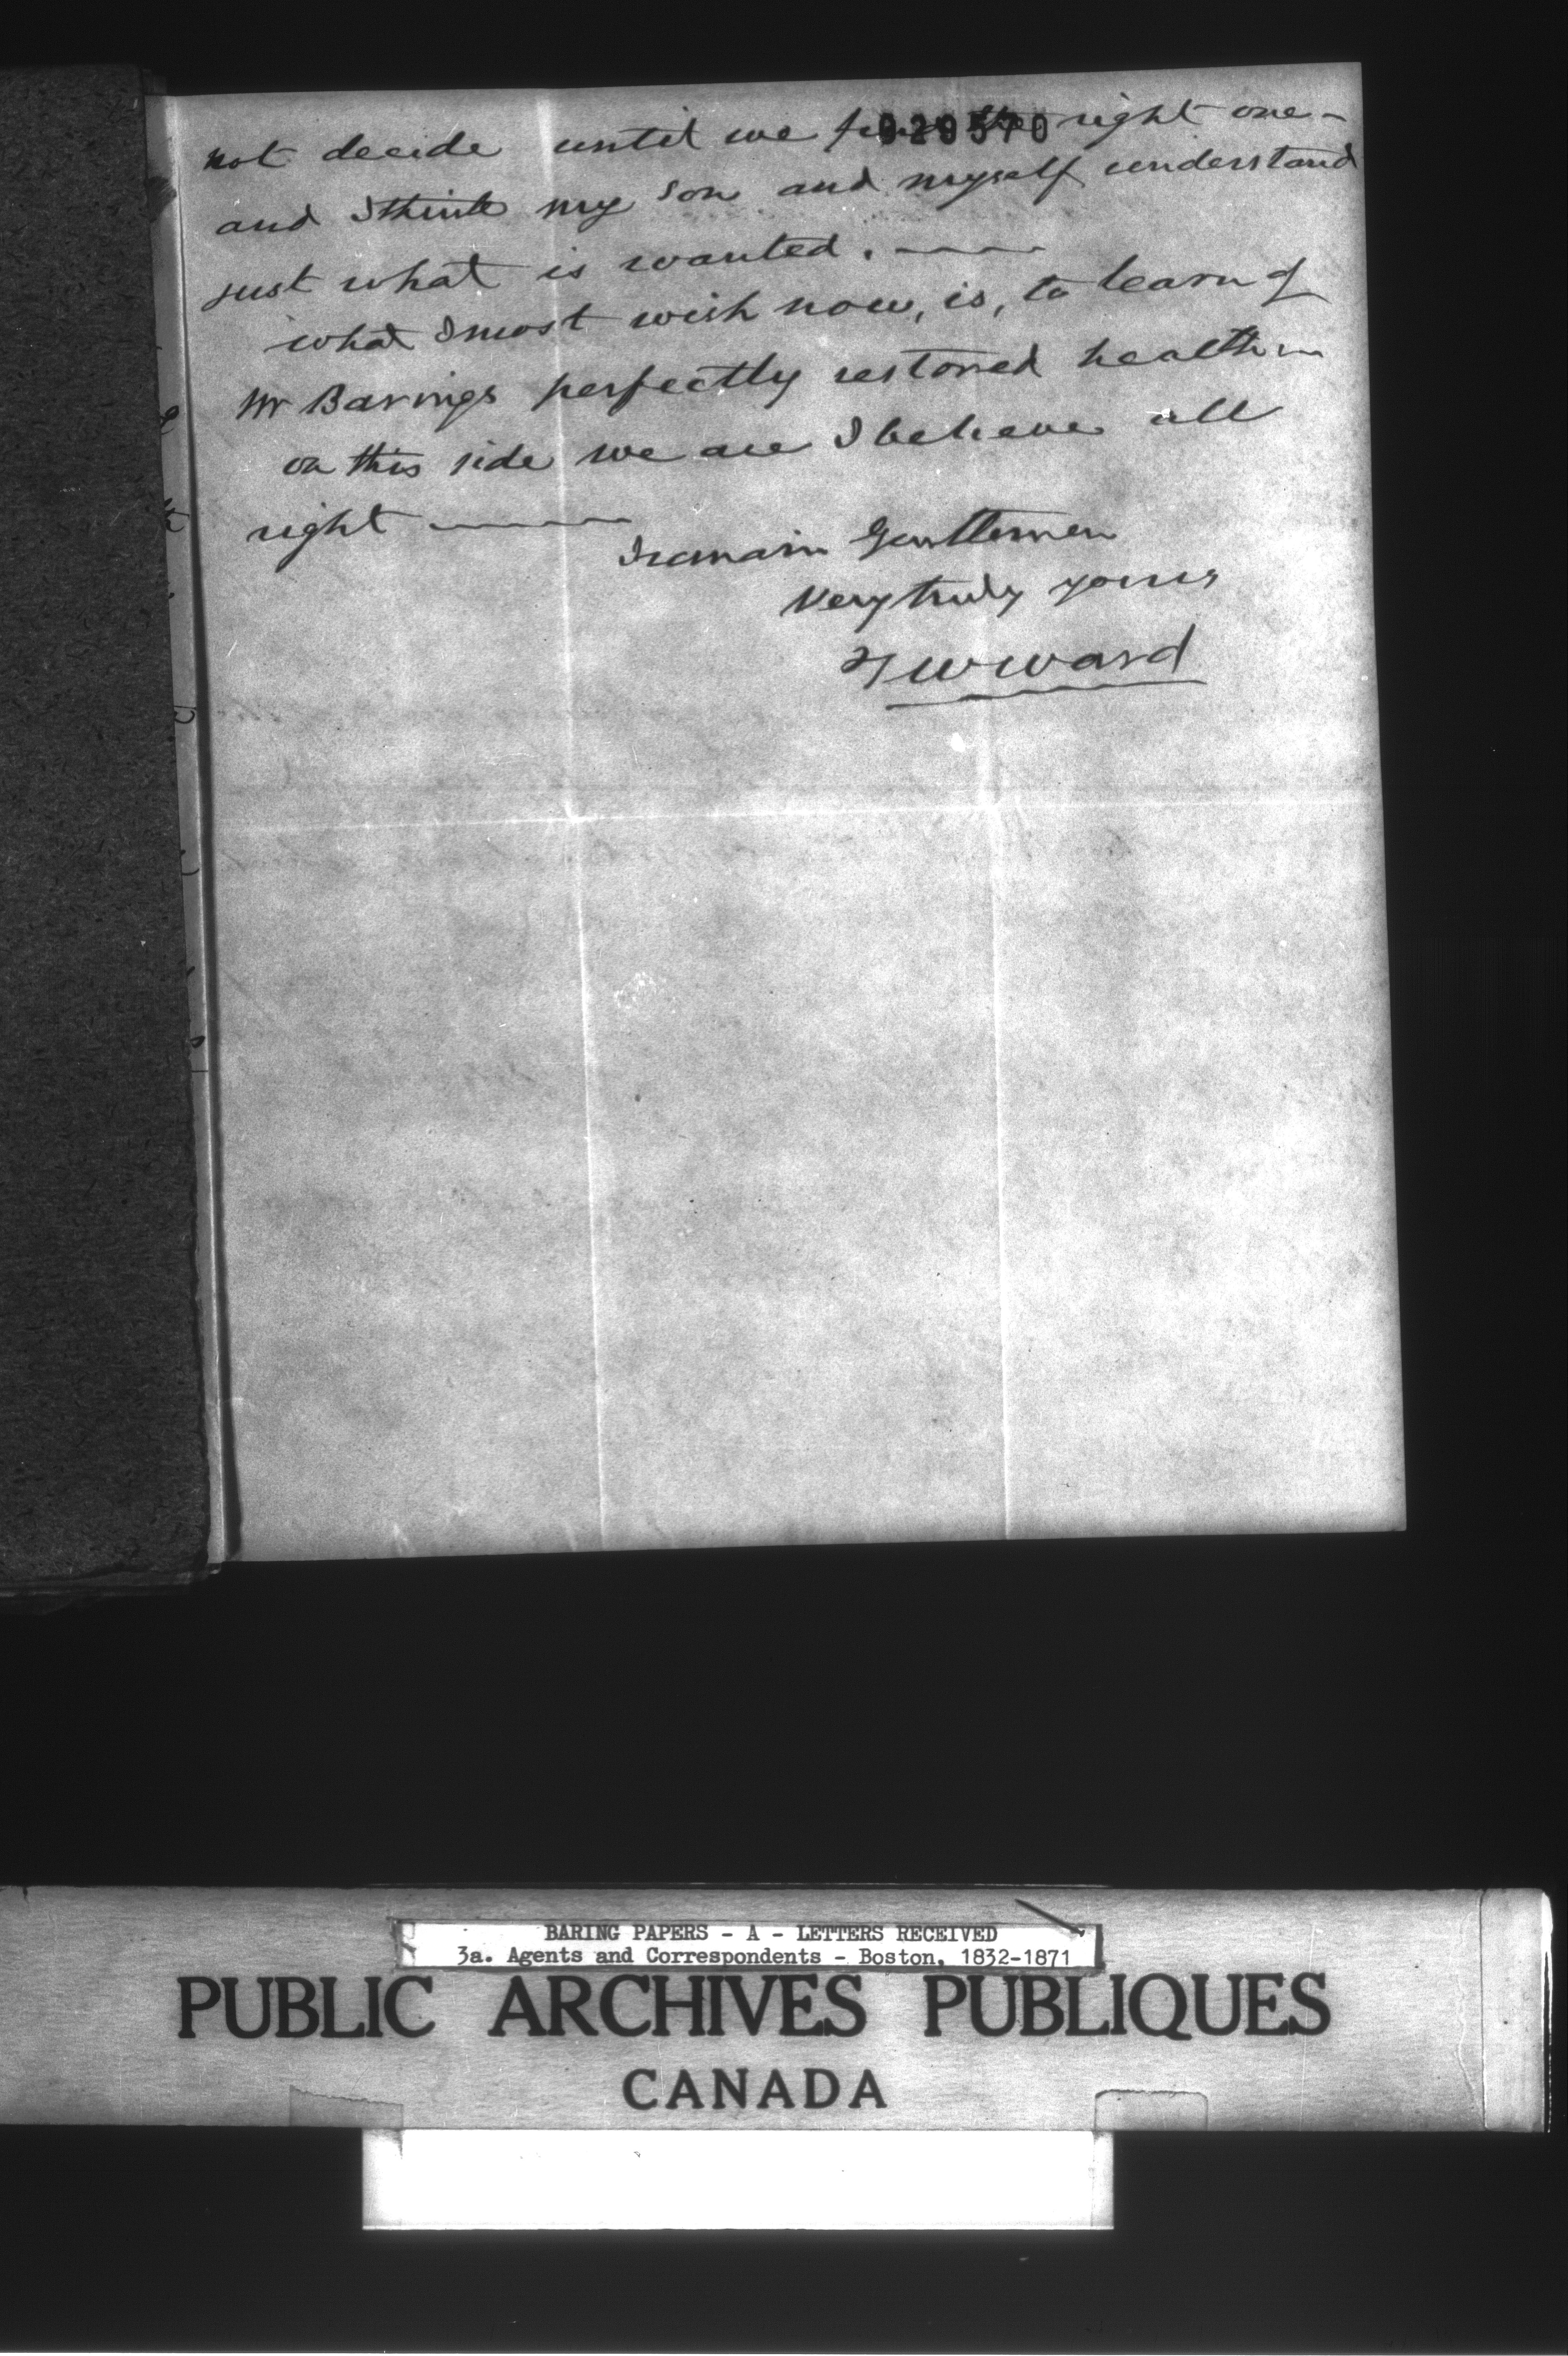 029570
not decide until we find the right one -
and I think my son and myself understand
just what is wanted. ———
what I most wish now, is, to learn of
Mr Barings perfectly restored health —
on this side we are I believe all
right ———
I remain Gentlemen
Very truly yours
T W Ward
BARING PAPERS - A - LETTERS RECEIVED
3a. Agents and Correspondents - Boston, 1832-1871
PUBLIC ARCHIVES PUBLIQUES
CANADA